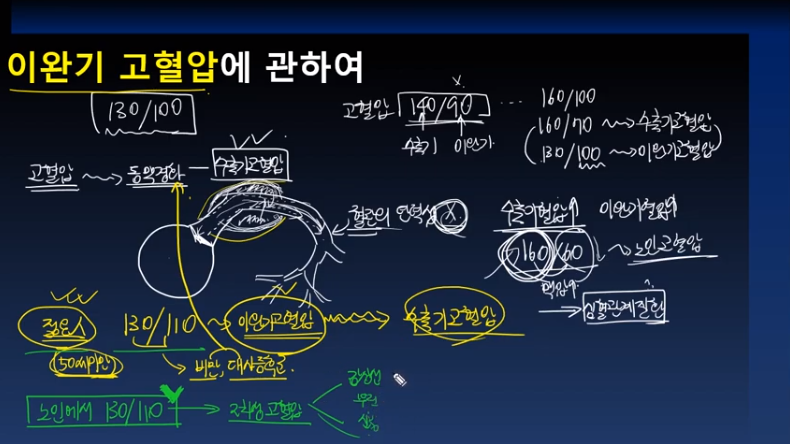 이완기 고혈압에 관하여
130/100
고혈압 140/90 ... 160/100
수축기 이완기
160/70 ~> 수축기고혈압
130/100 ~> 이완기고혈압
고혈압 ~> 동맥경화 — 수축기고혈압
혈관의 탄력성 X
수축기혈압↑ 이완기혈압↓
160/60 ~> 노인고혈압
맥압↑
→ 심혈관계질환
젊은 130/110 ~> 이완기고혈압 ~> 수축기고혈압
(50세미만) → 비만, 대사증후군.
노인에서 130/110 → 2차성고혈압
갑상선
신장